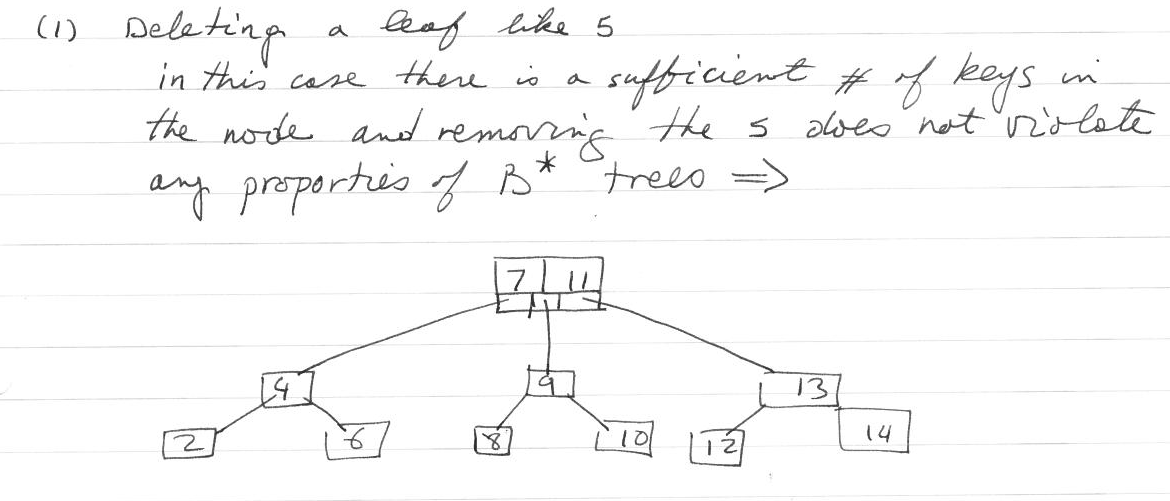 (1) Deleting a leaf like 5
in this case there is a sufficient # of keys in
the node and removing the 5 does not violate
any proporties of B* trees =>
7 11
4 9 13
2 6 8 10 12 14